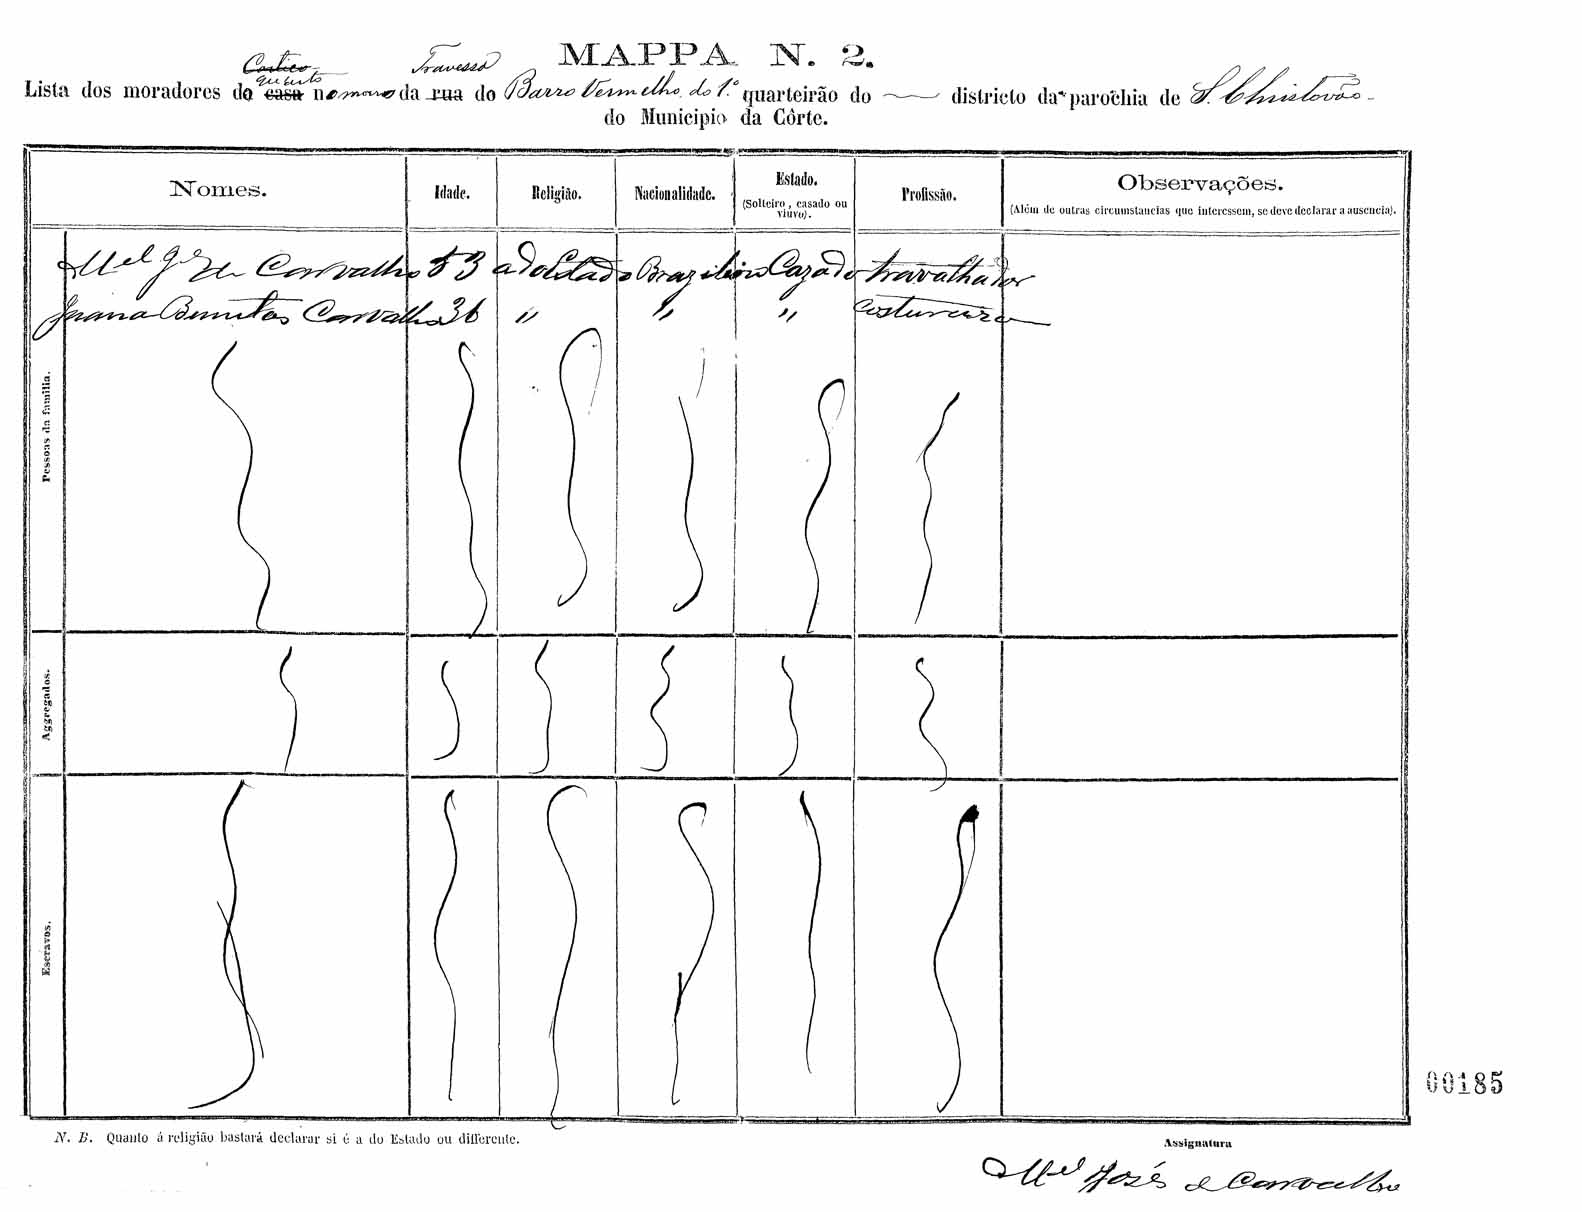 MAPPA N. 2.
Cortiço
Travessa
quarto
Lista dos moradores do casa n da rua do Barro Vermelho do 1.º quarteirão do districto da parochia de S. Christovão
do Municipio da Côrte.
Nomes. Idade. Religião. Nacionalidade. Estado. (Solteiro, casado ou viuvo). Profissão. Observações. (Além de outras circumstancias que interessem, se deve declarar a ausencia).
Pessoas da familia.
Mel Carvalho 53 a do Estado Cazado travalhador
Carvalho 36 " " " Costureira
Aggregados.
Escravos.
00185
N. B. Quanto á religião bastará declarar si é a do Estado ou differente.
Assignatura
Mel José de Carvalho